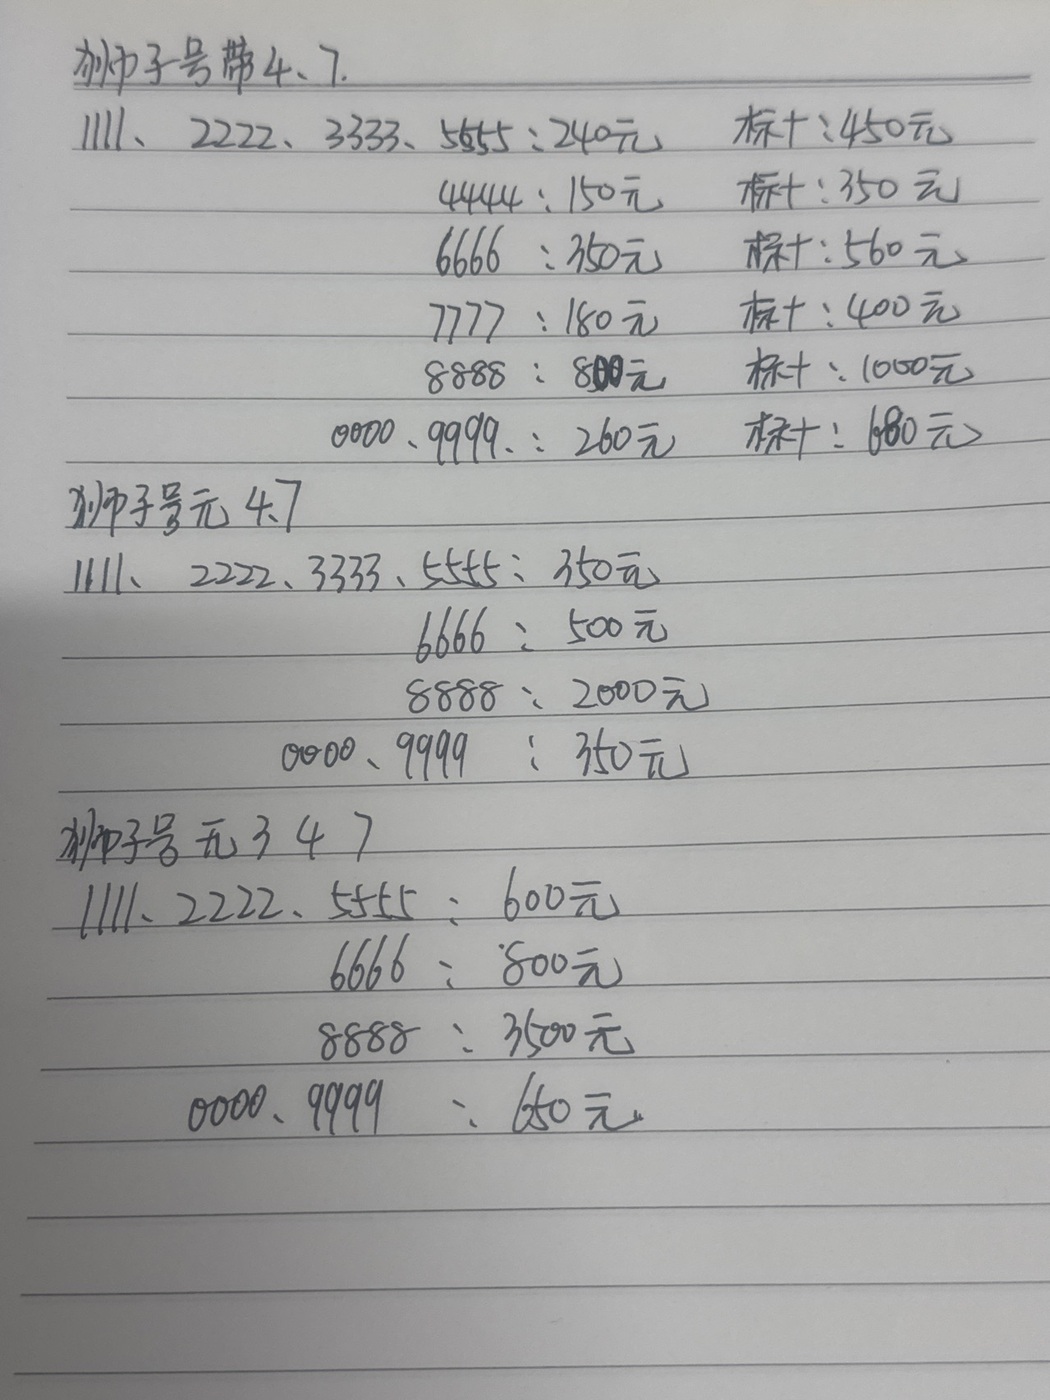 狮子号带4、7.
1111、2222、3333、5555:240元 标十:450元
4444:150元 标十:350元
6666:350元 标十:560元
7777:180元 标十:400元
8888:800元 标十:1000元
0000、9999、:260元 标十:680元
狮子号元4、7
1111、2222、3333、5555:350元
6666:500元
8888:2000元
0000、9999:350元
狮子号无347
1111、2222、5555:600元
6666:800元
8888:3500元
0000、9999:650元